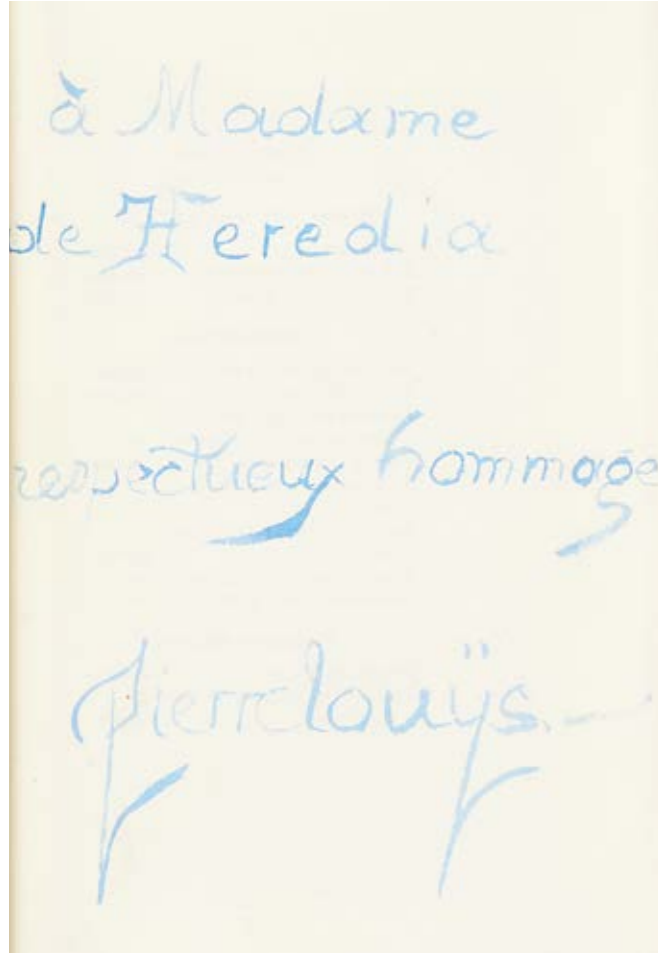 à Madame
de Heredia
respectueux hommage
pierre louÿs.